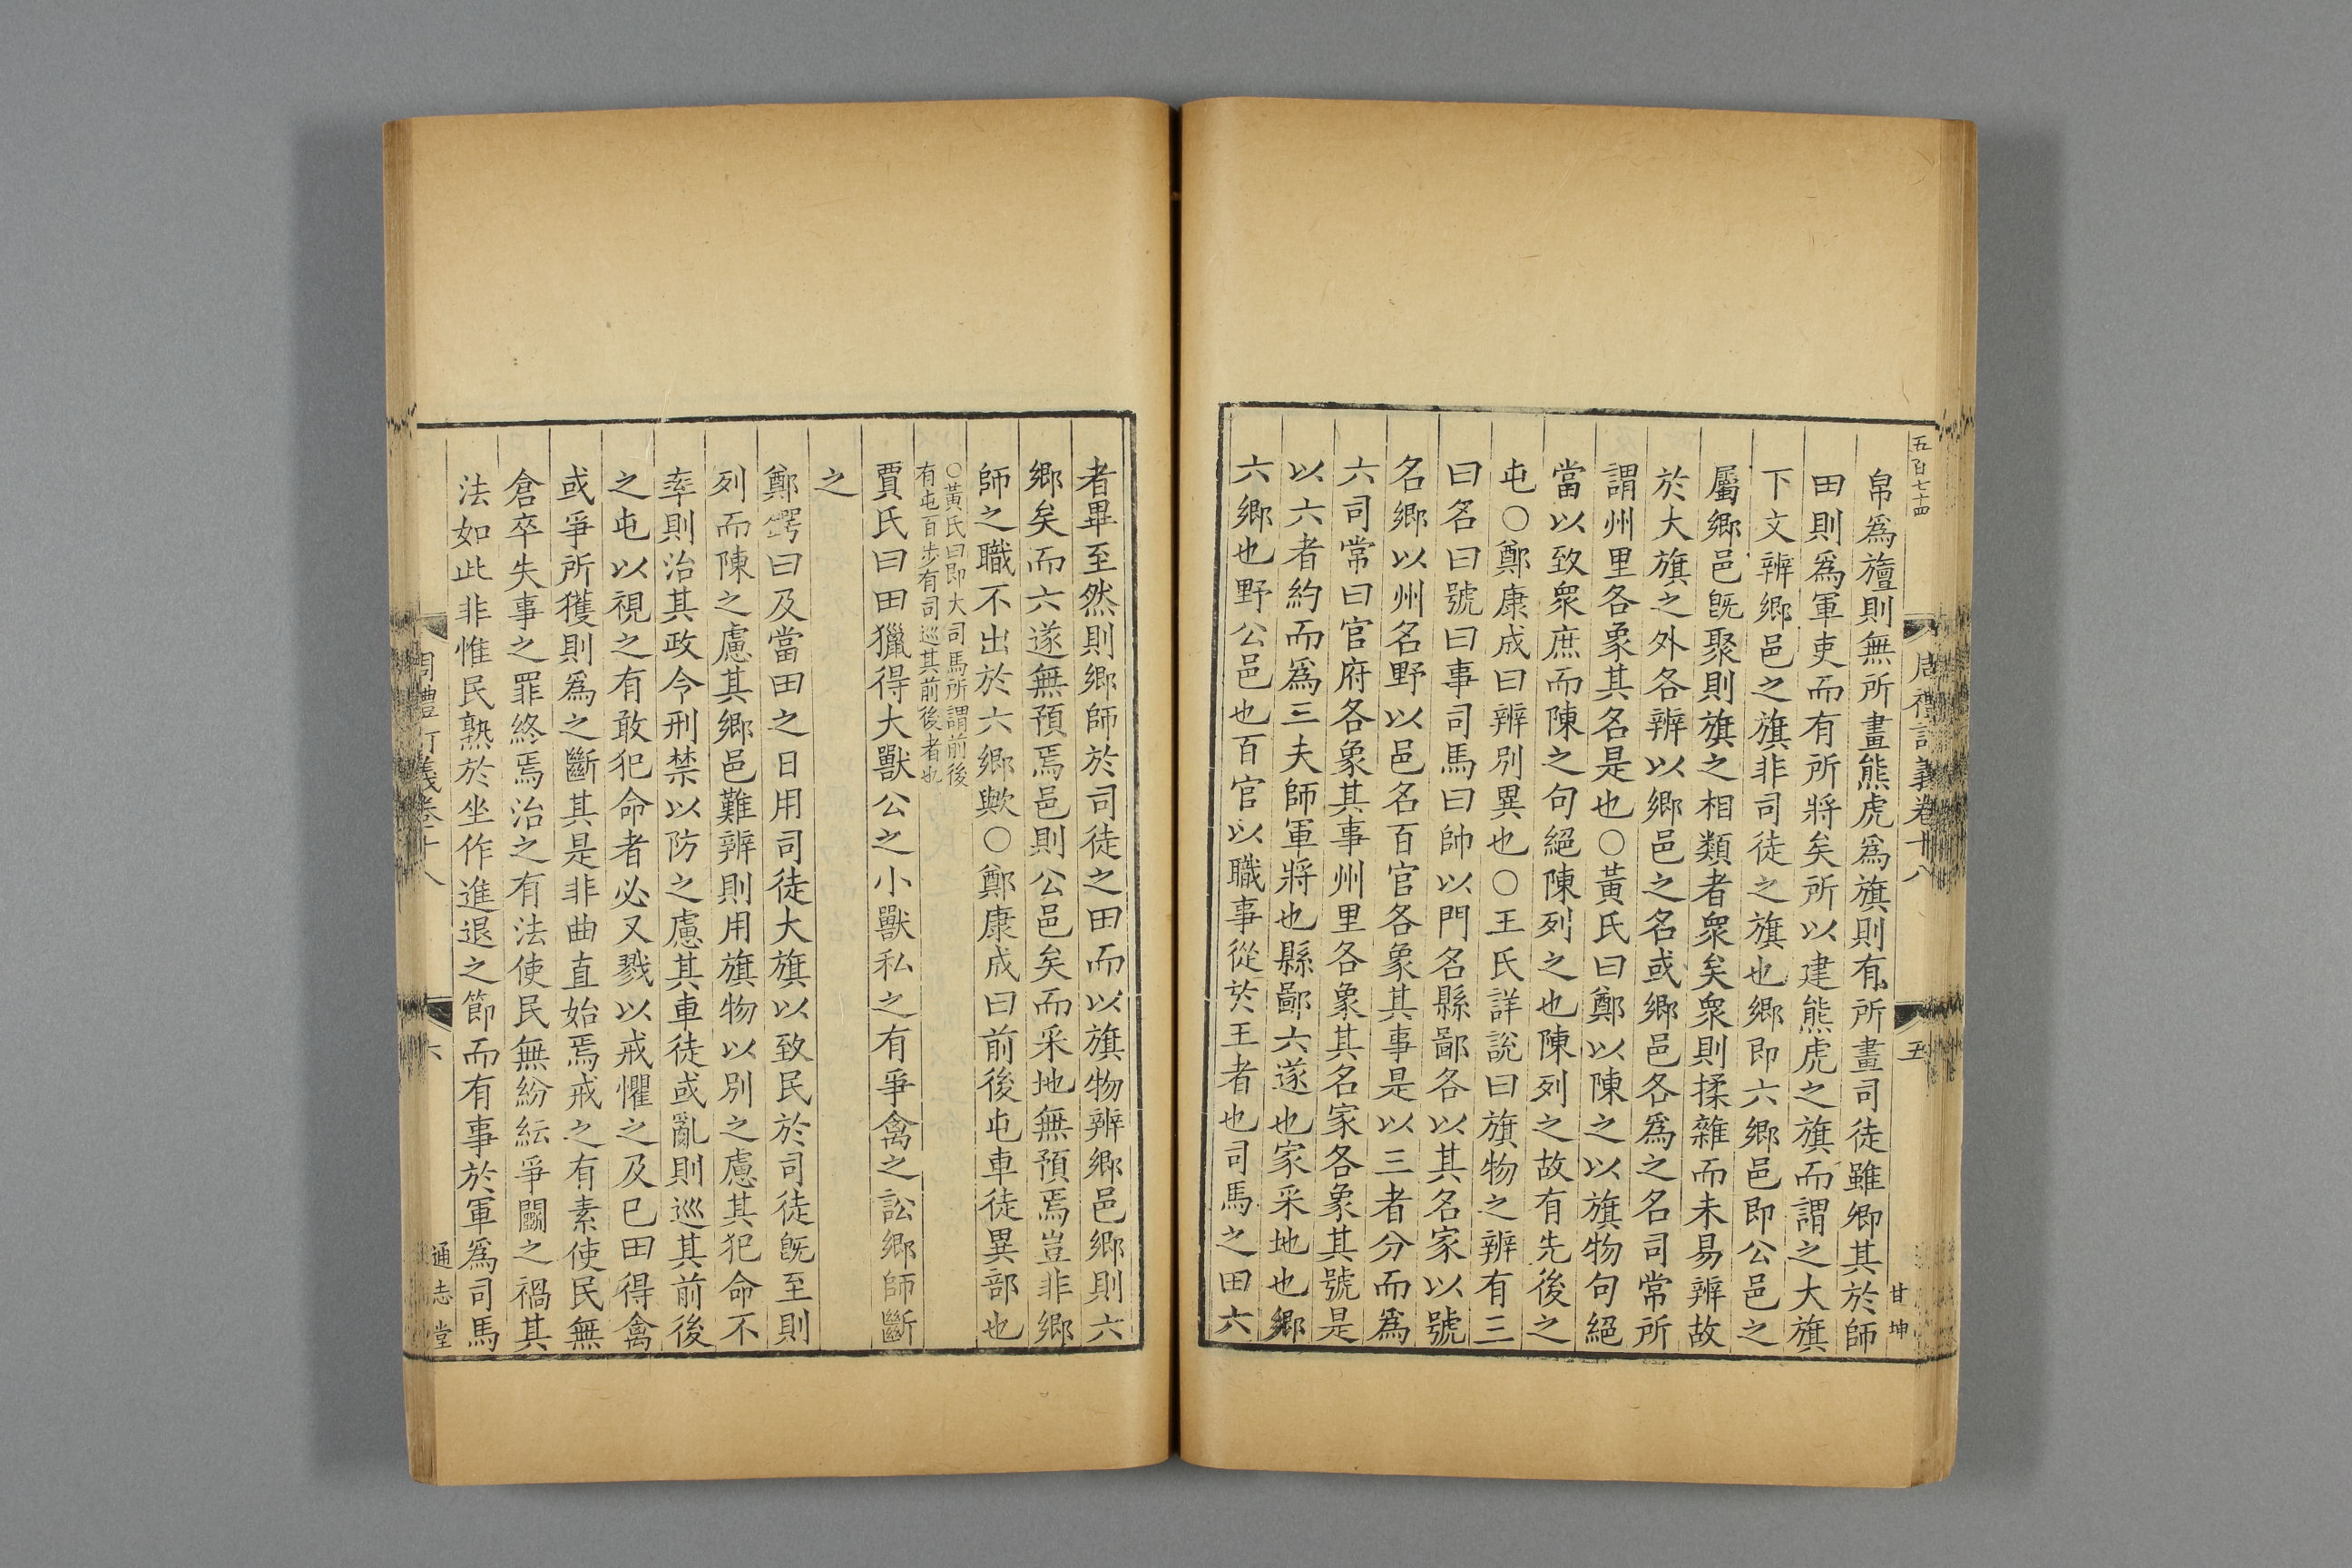 五百七十四
周禮訂義卷十八
五
甘坤
帛爲旜則無所畫熊虎爲旗則有所畫司徒雖卿其於師
田則爲軍吏而有所將矣所以建熊虎之旗而謂之大旗
下文辨鄉邑之旗非司徒之旗也鄉即六鄉邑即公邑之
屬鄉邑旣聚則旗之相類者衆矣衆則揉雜而未易辨故
於大旗之外各辨以鄉邑之名或鄉邑各爲之名司常所
謂州里各象其名是也○黃氏曰鄭以陳之以旗物句絕
當以致衆庶而陳之句絕陳列之也陳列之故有先後之
屯○鄭康成曰辨別異也○王氏詳說曰旗物之辨有三
曰名曰號曰事司馬曰帥以門名縣鄙各以其名家以號
名鄉以州名野以邑名百官各象其事是以三者分而爲
六司常曰官府各象其事州里各象其名家各象其號是
以六者約而爲三夫師軍將也縣鄙六遂也家采地也鄉
六鄉也野公邑也百官以職事從於王者也司馬之田六
者畢至然則鄉師於司徒之田而以旗物辨鄉邑鄉則六
鄉矣而六遂無預焉邑則公邑矣而采地無預焉豈非鄉
師之職不出於六鄉歟○鄭康成曰前後屯車徒異部也
○黃氏曰即大司馬所謂前後
有屯百步有司巡其前後者也
賈氏曰田獵得大獸公之小獸私之有爭禽之訟鄉師斷
之
鄭鍔曰及當田之日用司徒大旗以致民於司徒旣至則
列而陳之慮其鄉邑難辨則用旗物以別之慮其犯命不
率則治其政令刑禁以防之慮其車徒或亂則巡其前後
之屯以視之有敢犯命者必又戮以戒懼之及已田得禽
或爭所獲則爲之斷其是非曲直始焉戒之有素使民無
倉卒失事之罪終焉治之有法使民無紛紜爭鬭之禍其
法如此非惟民熟於坐作進退之節而有事於軍爲司馬
周禮訂義卷十八
六
通志堂